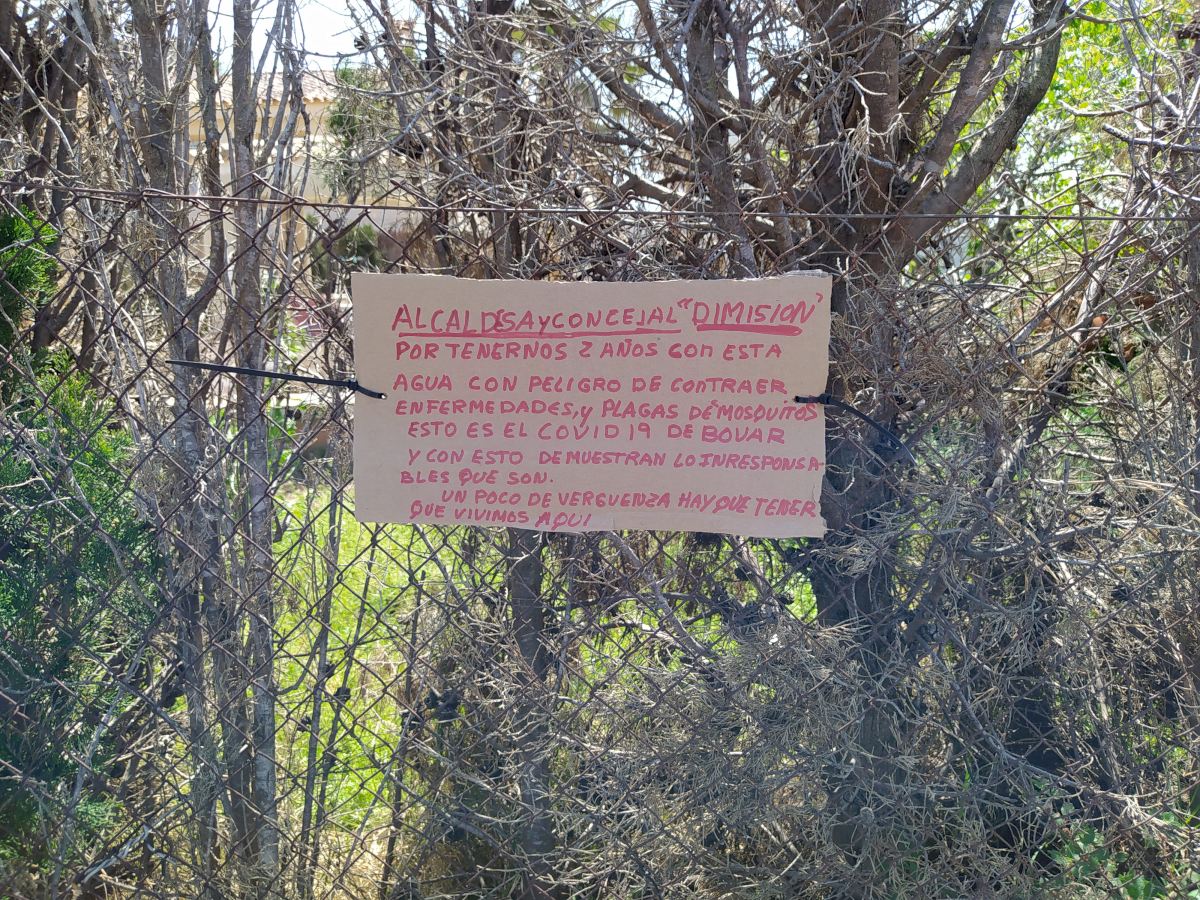 ALCALDESA Y CONCEJAL "DIMISION"
POR TENERNOS 2 AÑOS CON ESTA
AGUA CON PELIGRO DE CONTRAER
ENFERMEDADES, y PLAGAS DE MOSQUITOS
ESTO ES EL COVID 19 DE BOVAR
Y CON ESTO DEMUESTRAN LO INRESPONSA-
BLES QUE SON.
UN POCO DE VERGUENZA HAY QUE TENER
QUE VIVIMOS AQUI